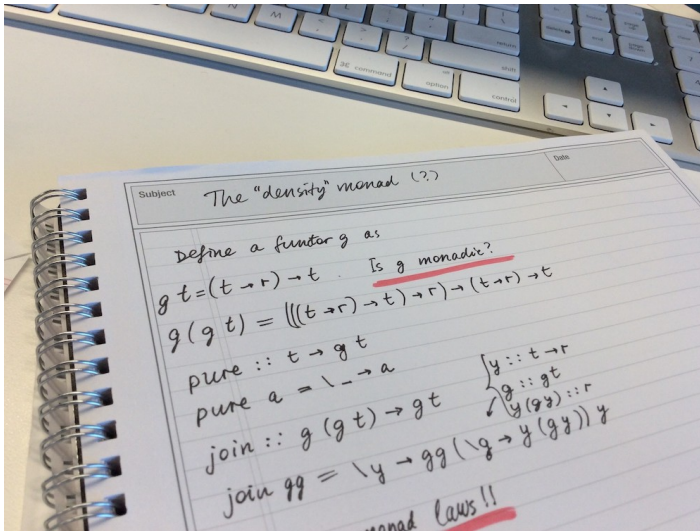 command
option
control
return
shift
Subject
The "density" monad (?)
Date
Define a functor g as
g t = (t → r) → t. Is g monadic?
g (g t) = (((t → r) → t) → r) → (t → r) → t
pure :: t → g t
pure a = \_ → a
join :: g (g t) → g t
y :: t → r
g :: g t
y (g y) :: r
join gg = \y → gg (\g → y (g y)) y
monad laws!!